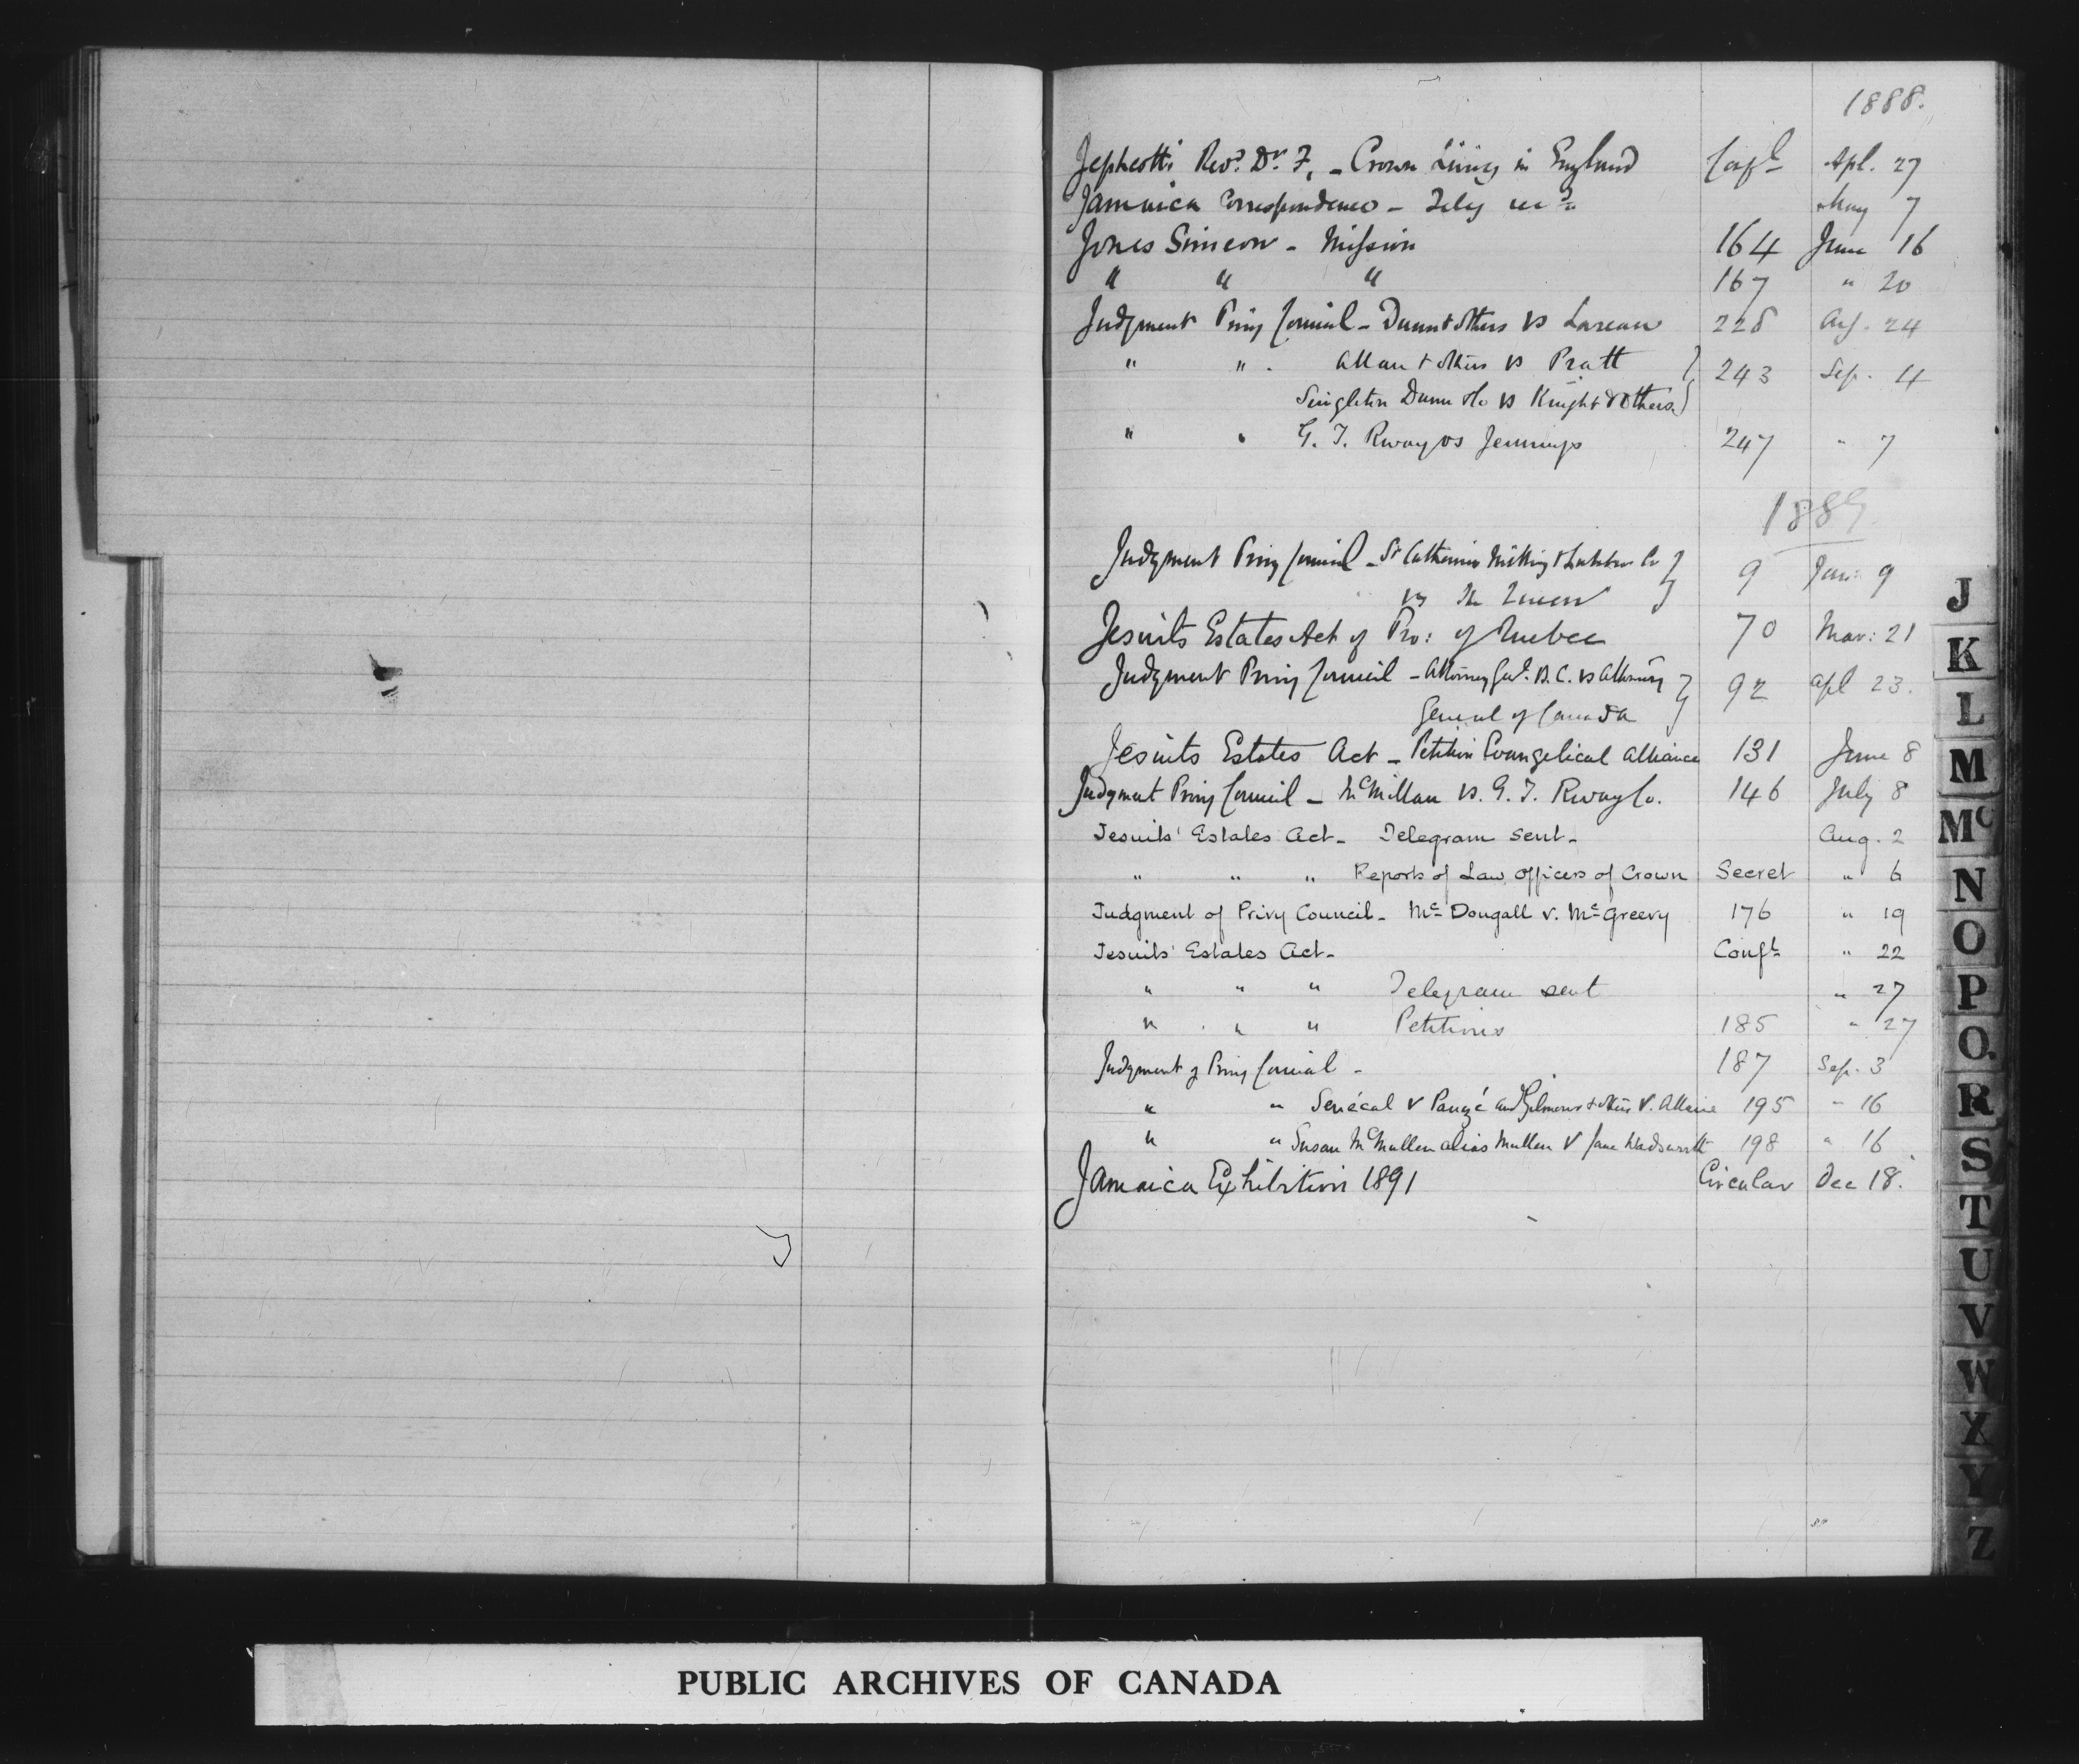 1888.
Jephcott Revd. Dr. F. - Crown Living in England Confl Apl. 27
Jamaica Correspondence - Telg recd May 7
Jones Simeon - Mission 164 June 16
" " " 167 " 20
Judgment Privy Council - Dunn & others vs Lareau 228 Aug. 24
" " Allan & others vs Pratt 243 Sep. 4
Singleton Dunn & Co vs Knight & Others
" " G. T. Rway vs Jennings 247 " 7
1889
Judgment Privy Council - St Catherines Milling & Lumber Co 9 Jan: 9
vs The Queen
Jesuits Estates Act of Pro: of Quebec 70 Mar: 21
Judgment Privy Council - Attorney Genl. B.C. vs Attorney 92 Apl 23.
General of Canada
Jesuits Estates Act - Petition Evangelical Alliance 131 June 8
Judgment Privy Council - McMillan vs. G. T. Rway Co. 146 July 8
Jesuits' Estates Act - Telegram sent - Aug. 2
" " " Reports of Law Officers of Crown Secret " 6
Judgment of Privy Council - Mc Dougall v. McGreevy 176 " 19
Jesuits' Estates Act - Confl " 22
" " " Telegram sent " 27
" " " Petitions 185 " 27
Judgment of Privy Council - 187 Sep. 3
" " Senécal v Pauzé and Gilmour & others v. Allaire 195 " 16
" " Susan McMullen alias Mullen v Jane Wadsworth 198 " 16
Jamaica Exhibition 1891 Circular Dec 18.
J
K
L
M
Mc
N
O
P
Q.
R
S
T
U
V
W
X
Y
Z
PUBLIC ARCHIVES OF CANADA